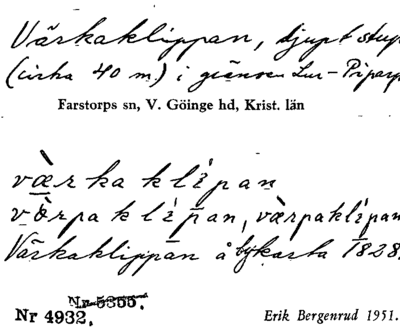 Värkaklippan, djupt stup
(cirka 40 m.) i gränsen Lur-Piparp
Farstorps sn, V. Göinge hd, Krist. län
værka klìpan
værpa klìpan, værpaklìpan
Värkaklippan å bykarta 1828.
Nr 5355.
Nr 4932.
Erik Bergenrud 1951.